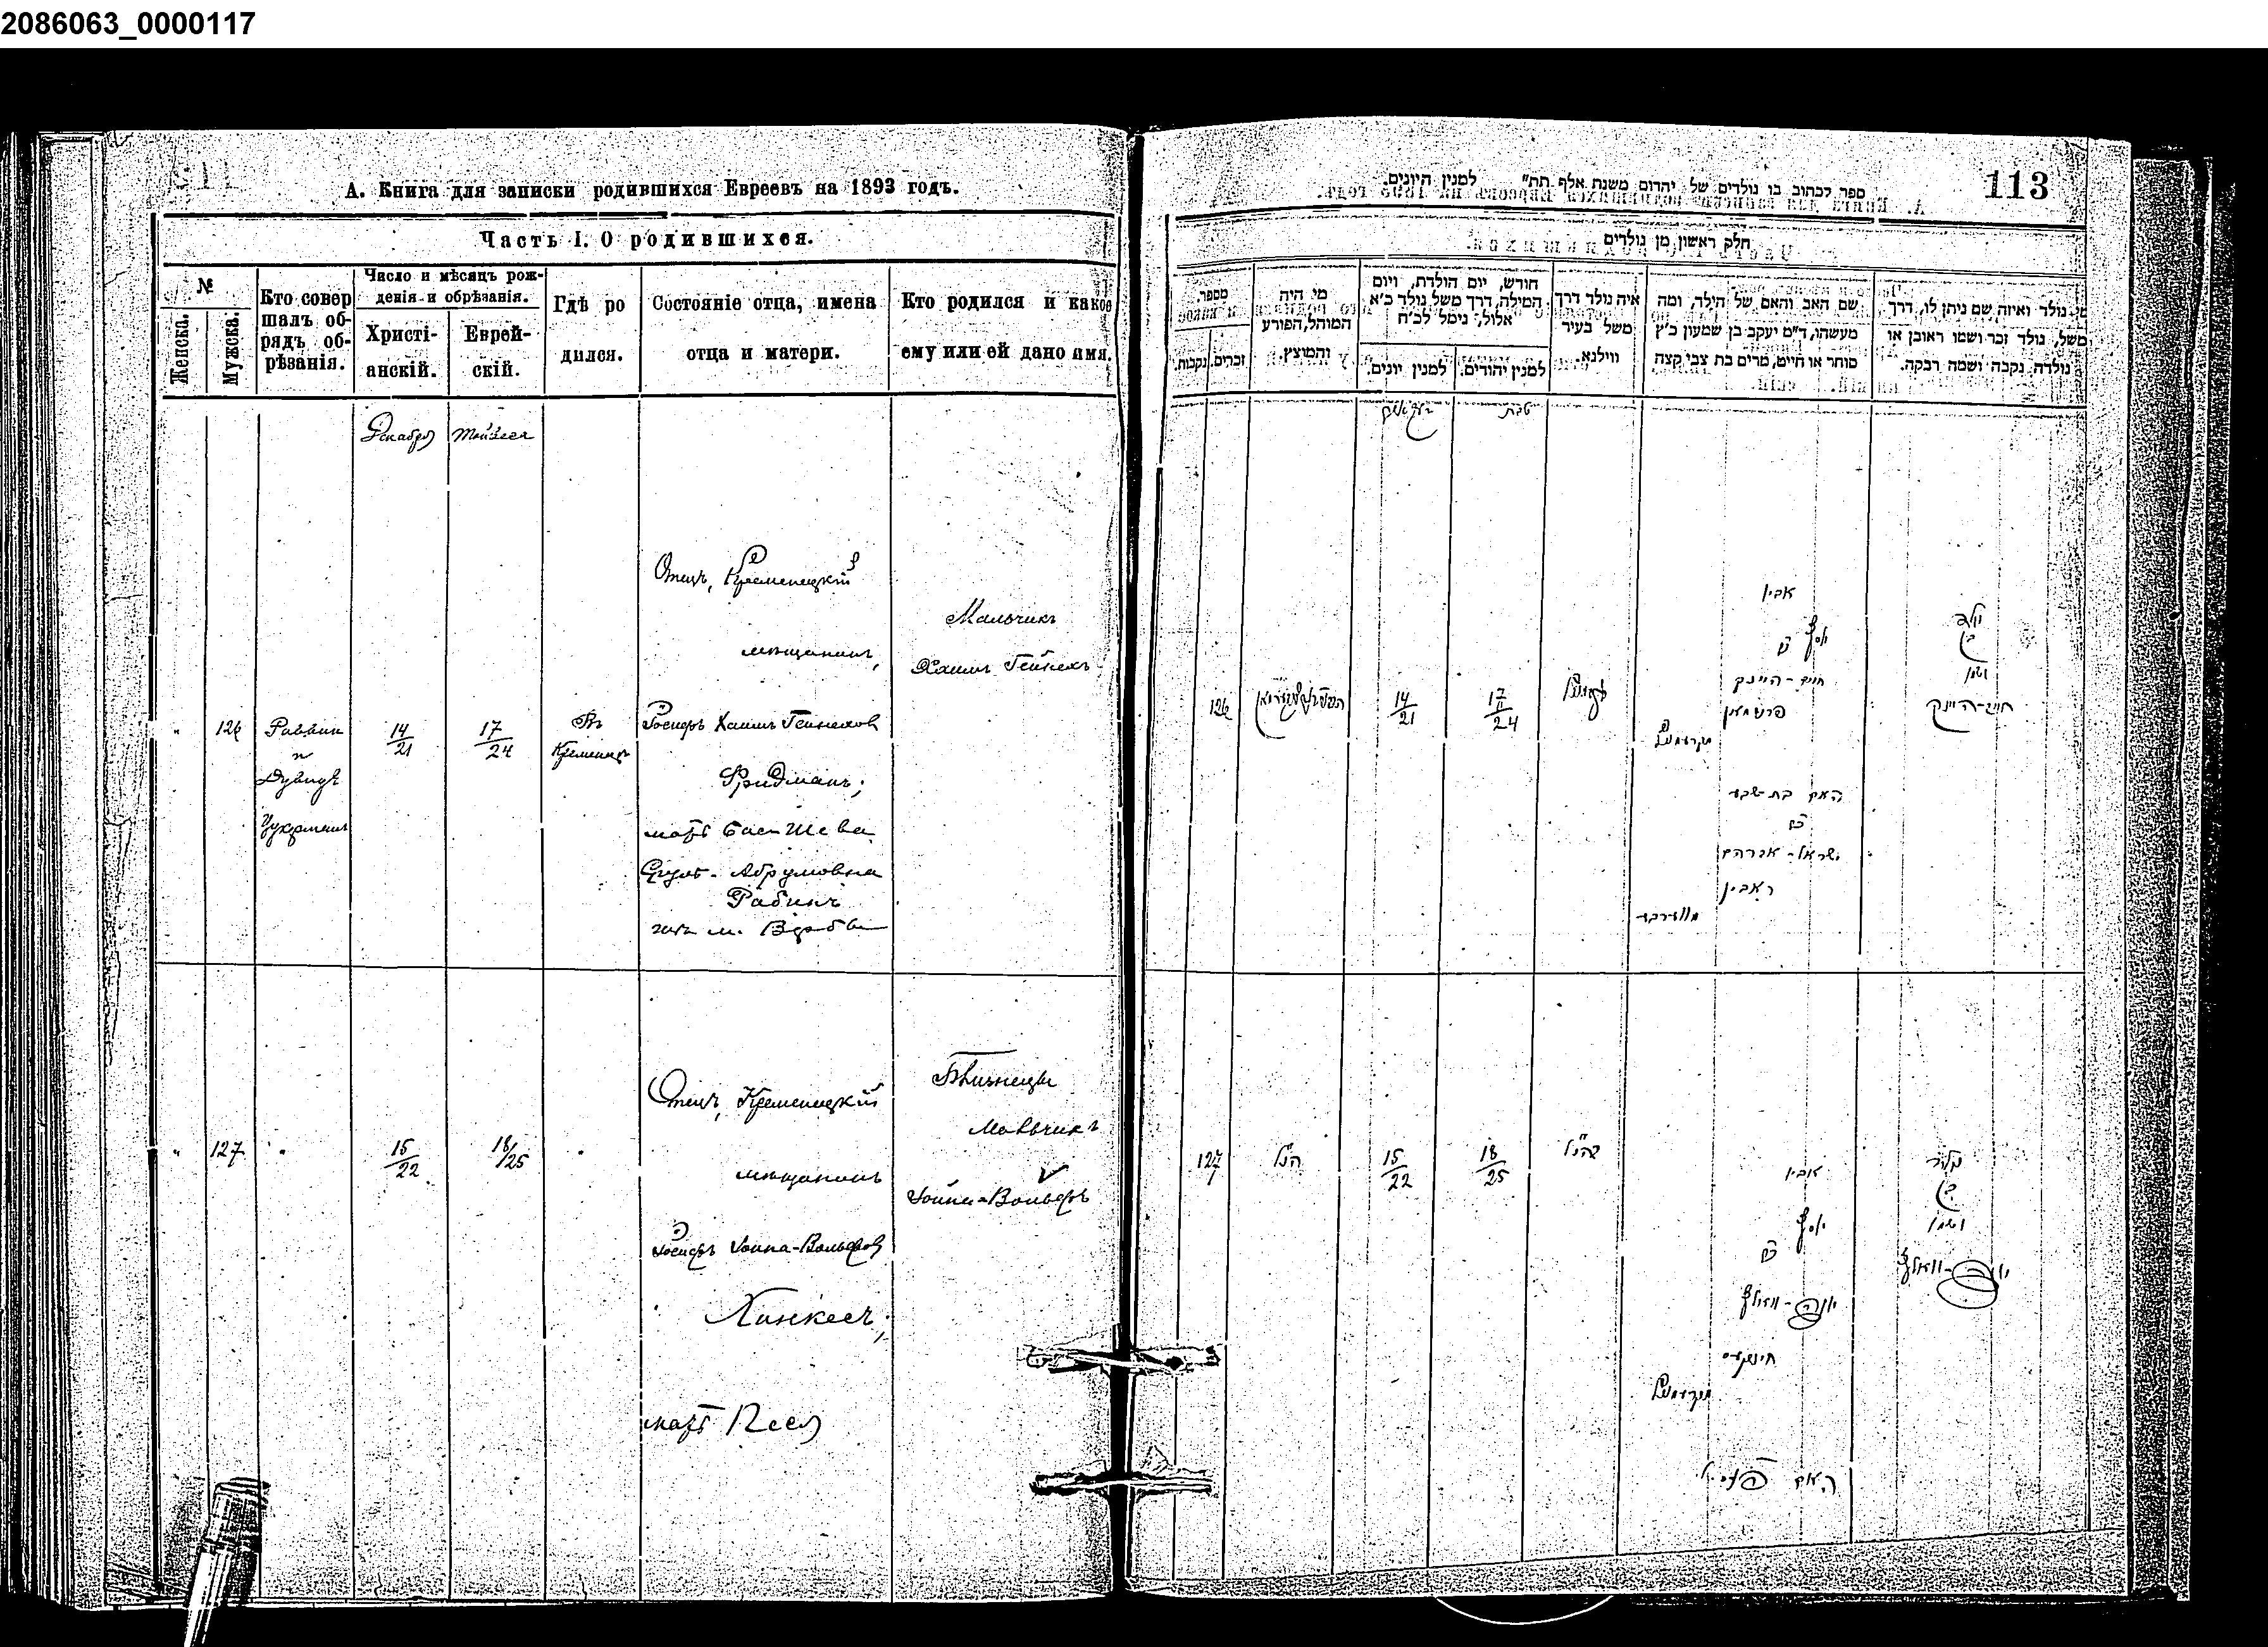 2086063_0000117
А. Книга для записки родившихся Евреевъ на 1893 годъ.
Часть I. О родившихся.
№
Женска.
Мужска.
Кто совер
шалъ об-
рядъ об-
рѣзанія.
Число и мѣсяцъ рож-
денія и обрѣзанія.
Христі-
анскій.
Еврей-
скій.
Гдѣ ро
дился.
Состояніе отца, имена
отца и матери.
Кто родился и какое
ему или ей дано имя.
Декабрь
Тейвесъ
126
Раввин
и
Цукерман
14/21
17/24
Въ
Кременцѣ
Отецъ, Кременецкій
мѣщанинъ,
Іосифъ Хаимъ Гейнехов
Фридманъ;
мать Бас-Шева
Сруль-Абрумовна
Рабинъ
изъ м.
Мальчикъ
Хаимъ Гейнехъ
127
15/22
18/25
Отецъ, Кременецкій
мѣщанинъ
Іосифъ Іойна-Вольфов
Хинкесъ;
мать Песя
Близнецы
Мальчикъ
Іойна-Вольфъ
113
ספר לכתוב בו נולדים של יהדום משנת אלף תת" למנין היונים.
חלק ראשון מן נולדים
מספר
זכרים.
נקבות.
מי היה
המוהל, הפורע
והמוצץ.
חורש, יום הולדת, ויום
המילה, דרך משל נולד כ'א
אלול, נימל לכ'ח
למנין יונים.
למנין יהודים.
איה נולד דרך
משל בעיר
ווילנא.
שם האב והאם של הילד, ומה
מעשהו, ד"מ יעקב בן שמעון כ'ץ
סוחר או חייט, מרים בת צבי קצה
מי נולד ואיזה שם ניתן לו, דרך
משל, נולד זכר ושמו ראובן או
נולדה נקבה ושמה רבקה.
טבת
126
14/21
17/24
אביו
יוסף
בן
חיים-היינק
פרידמאן
האם בת-שבע
בת
ישראל-אברהם
ראבין
ילד
בן
ושמו
חיים-היינק
127
הנ"ל
15/22
18/25
בהנ"ל
אביו
יוסף
בן
יונה-וואלף
חינקעס
האם פעסיל
נולד
בן
ושמו
יונה-וואלף